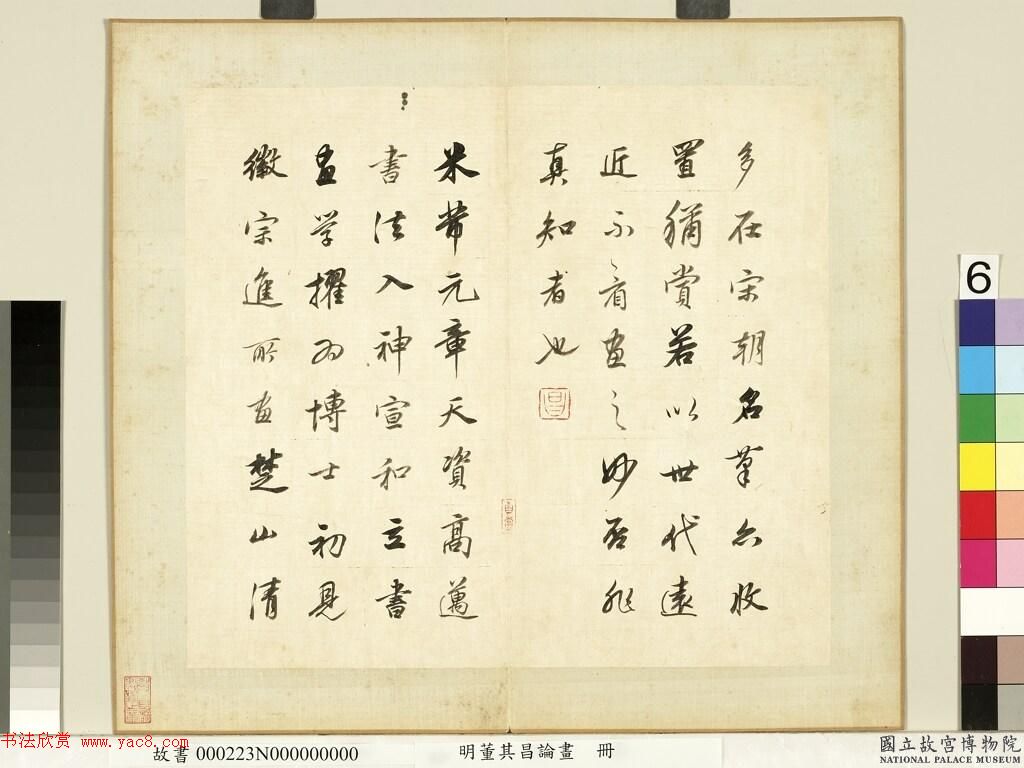 多在宋朝名筆亦收
置稱賞若以世代遠
近不看畫之妙否非
真知者也
昌
米芾元章天資高邁
書法入神宣和立書
畫學擢為博士初見
徽宗進所畫楚山清
6
书法欣赏 www.yac8.com
故書 000223N000000000
明董其昌論畫 冊
國立故宮博物院
NATIONAL PALACE MUSEUM